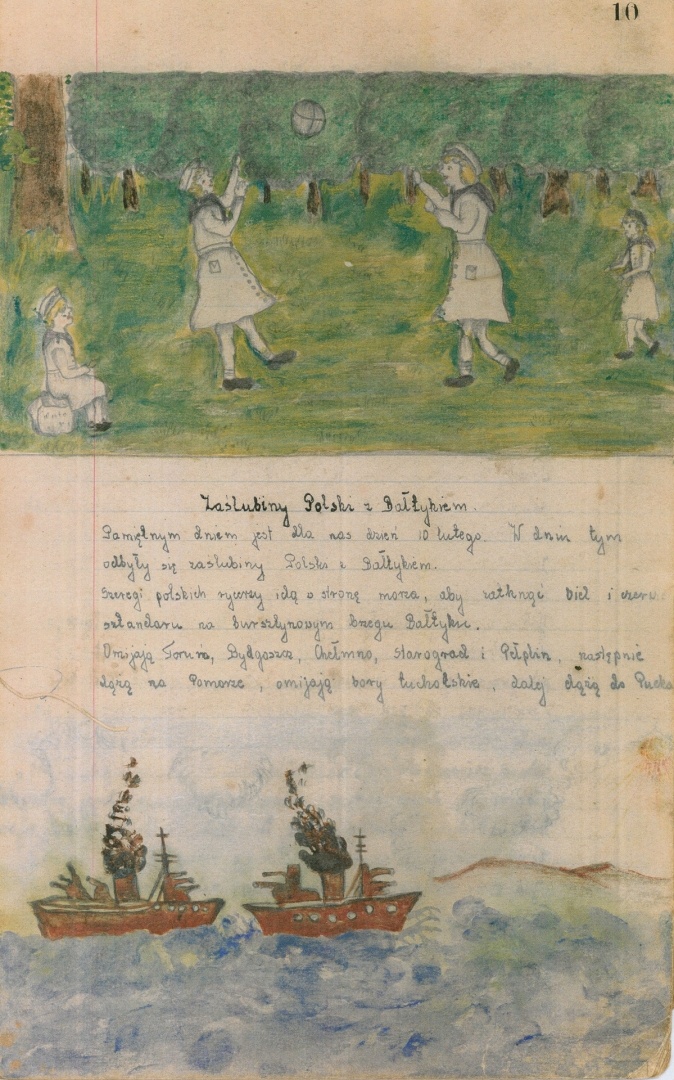 10
Zaślubiny Polski z Bałtykiem.
Pamiętnym dniem jest dla nas dzień 10 lutego. W dniu tym
odbyły się zaślubiny Polski z Bałtykiem.
Szeregi polskich rycerzy idą w stronę morza, aby zatknąć biel i czerw.
sztandaru na bursztynowym brzegu Bałtyku.
Omijają Toruń, Bydgoszcz, Chełmno, Starogrod i Pelplin, następnie
dążą na Pomorze, omijają bory tucholskie, dalej dążą do Pucka